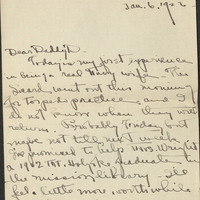 Jan. 6, 1902.
Dear Daddy:
Today is my first experience
in being a real Navy wife. The
went out this morning
for torpedo practice, and I
do not know when they will
return. Probably Friday but
maybe not till next week.
I've promised to help Mrs. Wright
a 1902 Mt. Holyoke graduate in
the mission library. I'll
feel a little more worthwhile